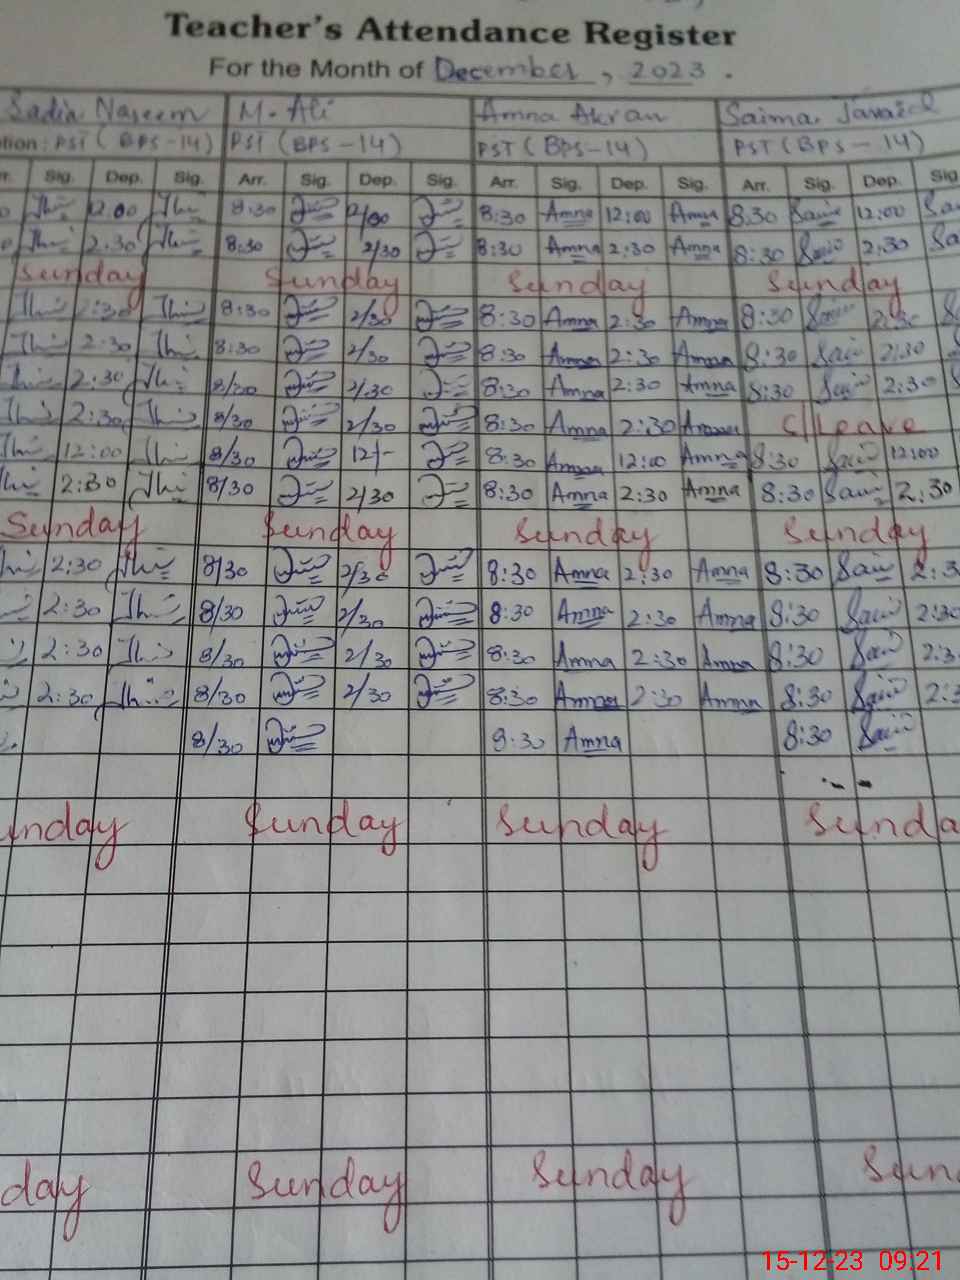 Teacher's Attendance Register
For the Month of December, 2023.
Sadia Naseem M. Ali Amna Akran Saima Javaid
tion: PST (BPS-14) PST (BPS-14) PST (BPS-14) PST (BPS-14)
rr. Sig. Dep. Sig. Arr. Sig. Dep. Sig. Arr. Sig. Dep. Sig. Arr. Sig. Dep. Sig
12:00 8:30 12/00 8:30 Amna 12:00 Amna 8:30 12:00
2:30 8:30 2/30 8:30 Amna 2:30 Amna 8:30 2:30
Sunday Sunday Sunday Sunday
2:30 8:30 2/30 8:30 Amna 2:30 Amna 8:30 2:30
2:30 8:30 2/30 8:30 Amna 2:30 Amna 8:30 2:30
2:30 8/30 2/30 8:30 Amna 2:30 Amna 8:30 2:30
2:30 8/30 2/30 8:30 Amna 2:30 Amna C/Leave
12:00 8/30 12/- 8:30 Amna 12:00 Amna 8:30 12:00
2:30 8/30 2/30 8:30 Amna 2:30 Amna 8:30 2:30
Sunday Sunday Sunday Sunday
2:30 8/30 2/30 8:30 Amna 2:30 Amna 8:30 2:3
2:30 8/30 2/30 8:30 Amna 2:30 Amna 8:30 2:30
2:30 8/30 2/30 8:30 Amna 2:30 Amna 8:30 2:3
2:30 8/30 2/30 8:30 Amna 2:30 Amna 8:30 2:3
8/30 9:30 Amna 8:30
unday Sunday Sunday Sunda
day Sunday Sunday Sun
15-12-23 09.21